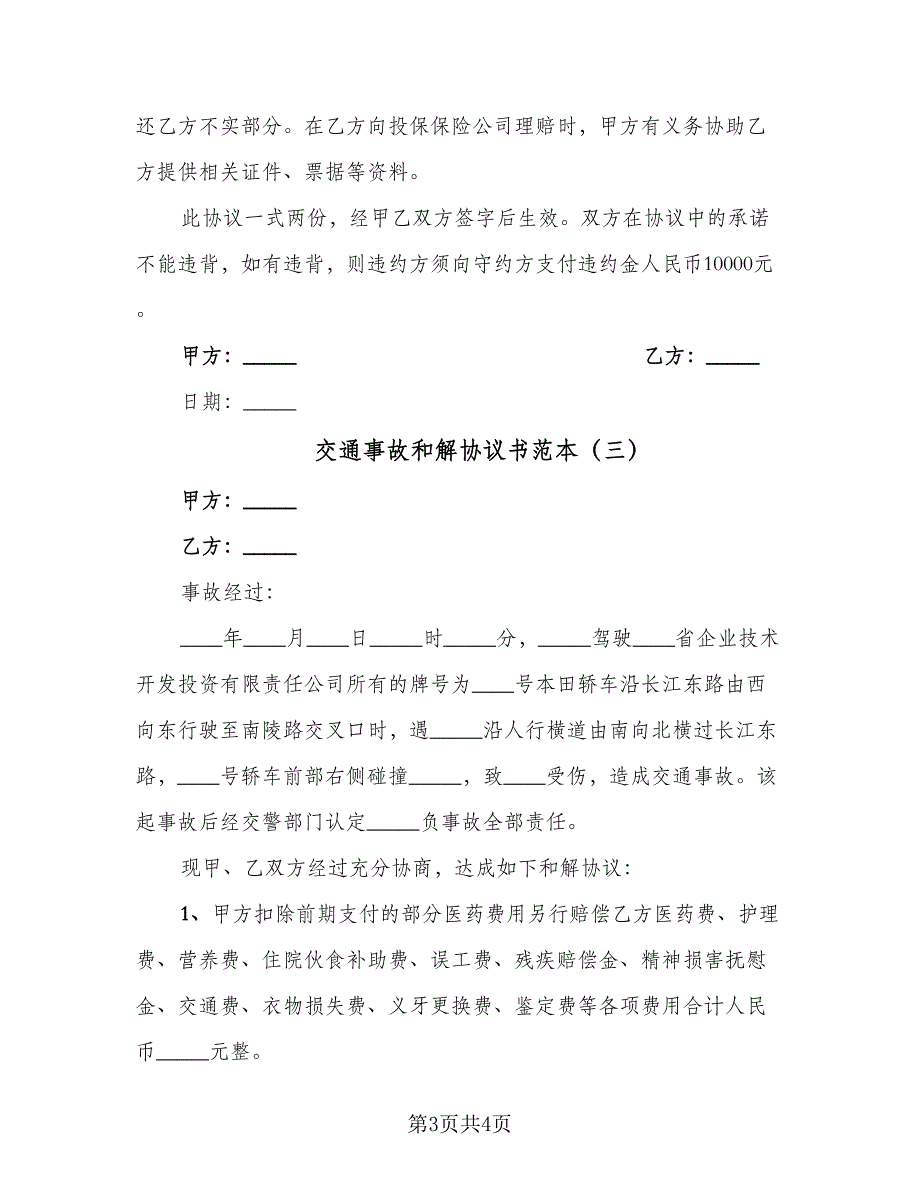 还乙方不实部分。在乙方向投保保险公司理赔时，甲方有义务协助乙
方提供相关证件、票据等资料。
此协议一式两份，经甲乙双方签字后生效。双方在协议中的承诺
不能违背，如有违背，则违约方须向守约方支付违约金人民币10000元
。
甲方：_____ 乙方：_____
日期：_____
交通事故和解协议书范本（三）
甲方：_____
乙方：_____
事故经过：
____年____月____日_____时_____分，_____驾驶____省企业技术
开发投资有限责任公司所有的牌号为____号本田轿车沿长江东路由西
向东行驶至南陵路交叉口时，遇_____沿人行横道由南向北横过长江东
路，____号轿车前部右侧碰撞_____，致____受伤，造成交通事故。该
起事故后经交警部门认定_____负事故全部责任。
现甲、乙双方经过充分协商，达成如下和解协议：
1、甲方扣除前期支付的部分医药费用另行赔偿乙方医药费、护理
费、营养费、住院伙食补助费、误工费、残疾赔偿金、精神损害抚慰
金、交通费、衣物损失费、义牙更换费、鉴定费等各项费用合计人民
币_____元整。
第3页共4页